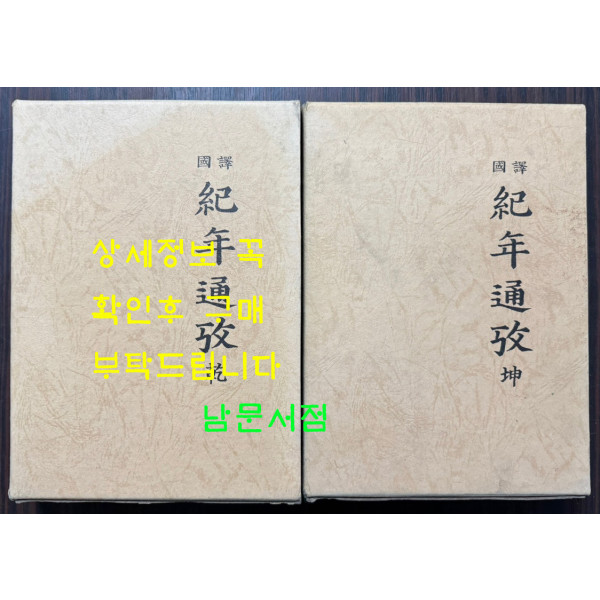 國譯
紀年通攷
乾
상세정보 꼭
확인후 구매
부탁드립니다
남문서점
國譯
紀年通攷
坤